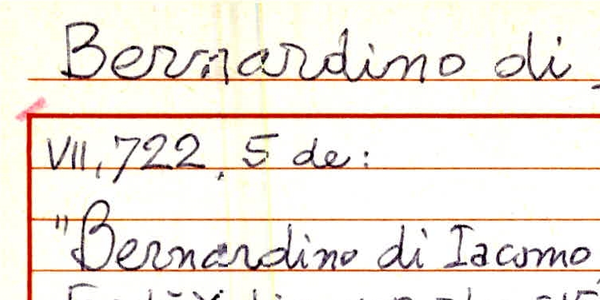 Bernardino di
VII, 722, 5 de:
"Bernardino di Iacomo